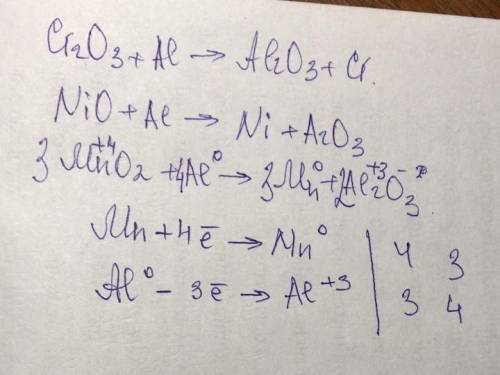 Cr₂O₃ + Al → Al₂O₃ + Cr.
NiO + Al → Ni + A₂O₃
3Mn⁺⁴O₂ + 4Al⁰ → 3Mn⁰ + 2Al₂⁺³O₃⁻²
Mn + 4ē → Mn⁰ | 4 3
Al⁰ - 3ē → Al⁺³ | 3 4